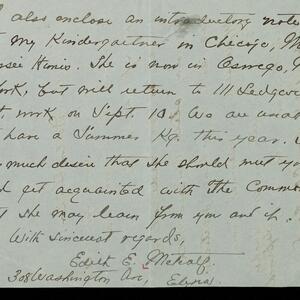 I also enclose an introductory note
my Kindergartner in Chicago,
She is now in Oswego,
but will return to 111
work on Sept. 10 We are
have a Summer Kg. this year.
much desire that she should meet you
get acquainted with the
she may learn from you and if
With sincerest regards,
Edith E. Metcalf.
308 Washington Av., Elyria